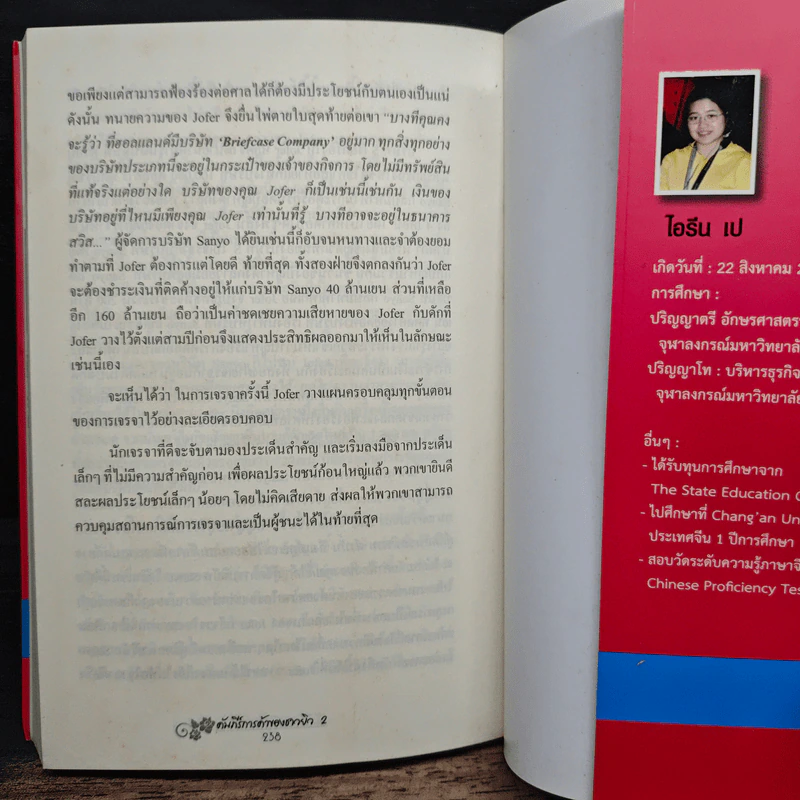 ขอเพียงแต่สามารถฟ้องร้องต่อศาลได้ก็ต้องมีประโยชน์กับตนเองเป็นแน่
ดังนั้น ทนายความของ Jofer จึงยื่นไพ่ตายใบสุดท้ายต่อเขา “บางทีคุณคง
จะรู้ว่า ที่ฮอลแลนด์มีบริษัท ‘Briefcase Company’ อยู่มาก ทุกสิ่งทุกอย่าง
ของบริษัทประเภทนี้จะอยู่ในกระเป๋าของเจ้าของกิจการ โดยไม่มีทรัพย์สิน
ที่แท้จริงแต่อย่างใด บริษัทของคุณ Jofer ก็เป็นเช่นนี้เช่นกัน เงินของ
บริษัทอยู่ที่ไหนมีเพียงคุณ Jofer เท่านั้นที่รู้ บางทีอาจจะอยู่ในธนาคาร
สวิส...” ผู้จัดการบริษัท Sanyo ได้ยินเช่นนี้ก็อับจนหนทางและจำต้องยอม
ทำตามที่ Jofer ต้องการแต่โดยดี ท้ายที่สุด ทั้งสองฝ่ายจึงตกลงกันว่า Jofer
จะต้องชำระเงินที่ติดค้างอยู่ให้แก่บริษัท Sanyo 40 ล้านเยน ส่วนที่เหลือ
อีก 160 ล้านเยน ถือว่าเป็นค่าชดเชยความเสียหายของ Jofer กับดักที่
Jofer วางไว้ตั้งแต่สามปีก่อนจึงแสดงประสิทธิผลออกมาให้เห็นในลักษณะ
เช่นนี้เอง
จะเห็นได้ว่า ในการเจรจาครั้งนี้ Jofer วางแผนครอบคลุมทุกขั้นตอน
ของการเจรจาไว้อย่างละเอียดรอบคอบ
นักเจรจาที่ดีจะจับตามองประเด็นสำคัญ และเริ่มลงมือจากประเด็น
เล็กๆ ที่ไม่มีความสำคัญก่อน เพื่อผลประโยชน์ก้อนใหญ่แล้ว พวกเขายินดี
สละผลประโยชน์เล็กๆ น้อยๆ โดยไม่คิดเสียดาย ส่งผลให้พวกเขาสามารถ
ควบคุมสถานการณ์การเจรจาและเป็นผู้ชนะได้ในท้ายที่สุด
คัมภีร์การค้าของชาวยิว 2
238
ไอรีน เป
เกิดวันที่ : 22 สิงหาคม 2
การศึกษา :
ปริญญาตรี อักษรศาสตร
จุฬาลงกรณ์มหาวิทยาลั
ปริญญาโท : บริหารธุรกิจ
จุฬาลงกรณ์มหาวิทยาลัย
อื่นๆ :
- ได้รับทุนการศึกษาจาก
The State Education C
- ไปศึกษาที่ Chang’an Un
ประเทศจีน 1 ปีการศึกษา
- สอบวัดระดับความรู้ภาษาจี
Chinese Proficiency Tes